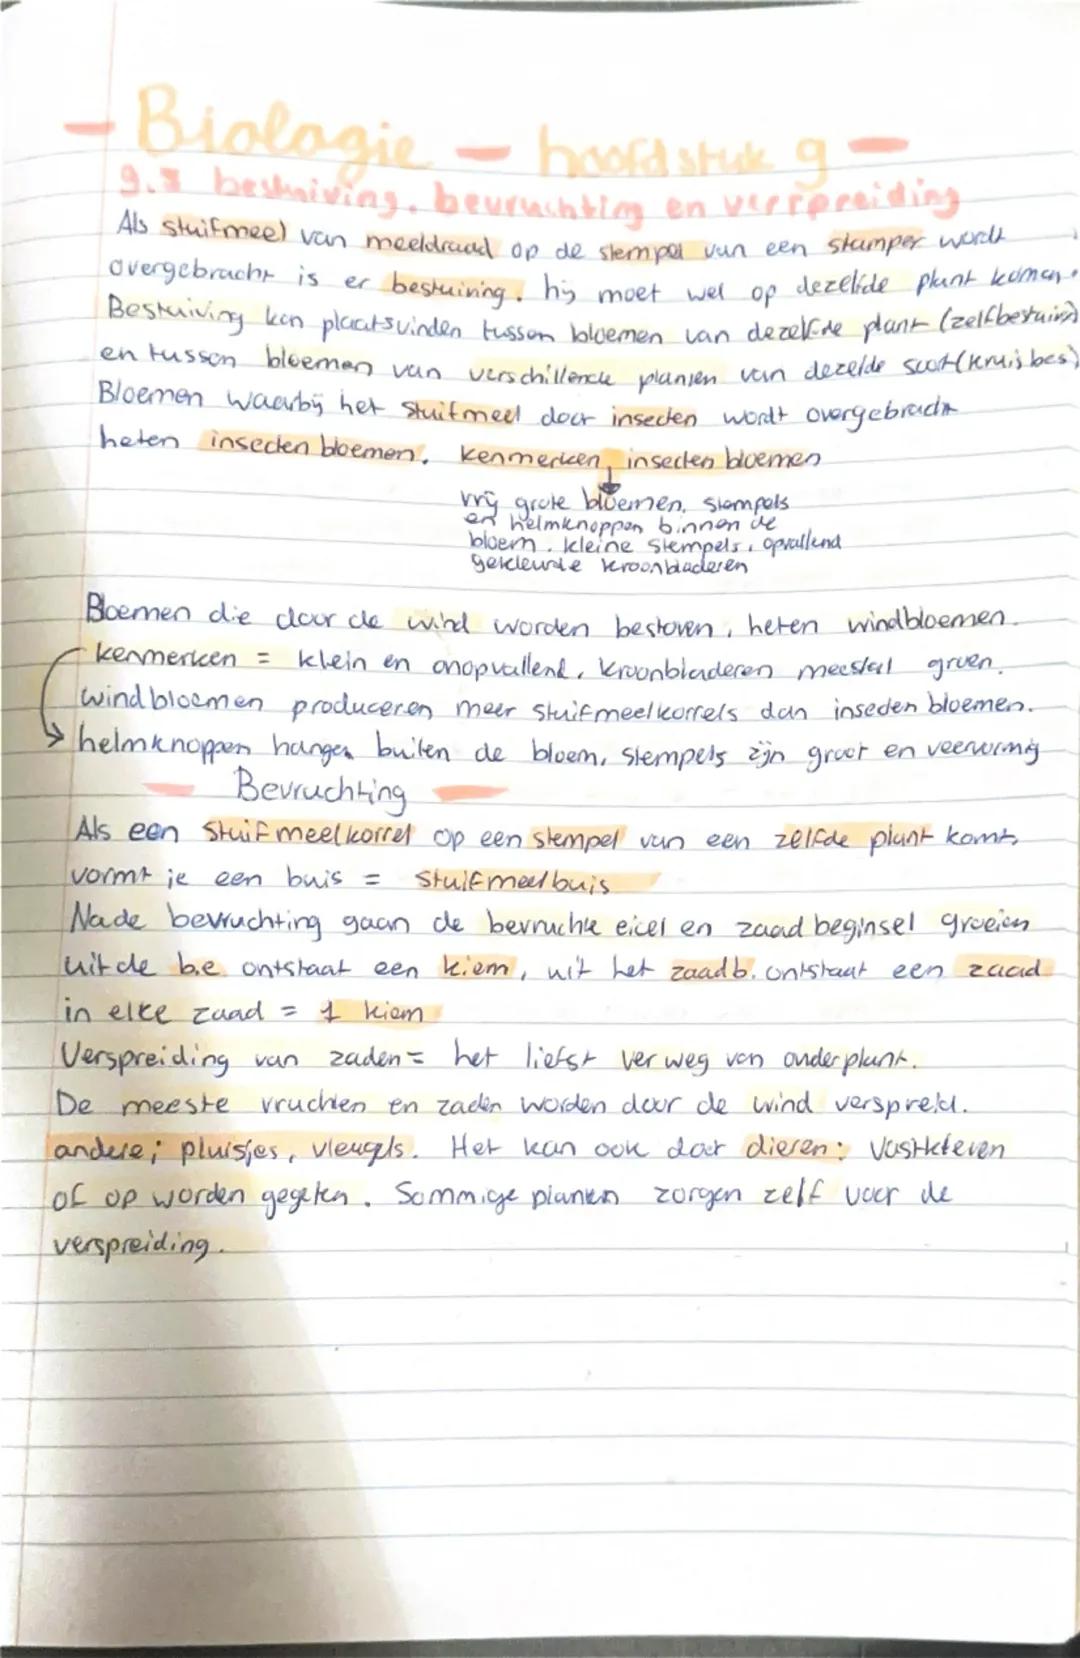 - Biologie - hoofdstuk 9 -
9.3 bestuiving, bevruchting en verspreiding
Als stuifmeel van meeldraad op de stempel van een stamper wordt
overgebracht is er bestuiving. hij moet wel op dezelfde plant komen.
Bestuiving kan plaatsvinden tussen bloemen van dezelfde plant (zelfbestuiv)
en tussen bloemen van verschillende planten van dezelfde soort (kruisbes)
Bloemen waarbij het stuifmeel door insecten wordt overgebracht
heten insecten bloemen. kenmerken insecten bloemen
vrij grote bloemen, stempels
en helmknoppen binnen de
bloem. kleine stempels, opvallend
gekleurde kroonbladeren
Bloemen die door de wind worden bestoven, heten windbloemen.
kenmerken = klein en onopvallend, kroonbladeren meestal groen.
windbloemen produceren meer stuifmeelkorrels dan insecten bloemen.
helmknoppen hangen buiten de bloem, stempels zijn groot en veervormig
- Bevruchting -
Als een stuifmeelkorrel op een stempel van een zelfde plant komt,
vormt ie een buis = stuifmeelbuis
Na de bevruchting gaan de bevruchte eicel en zaadbeginsel groeien
uit de b.e. ontstaat een kiem, uit het zaadb. ontstaat een zaad
in elke zaad = 1 kiem
Verspreiding van zaden = het liefst ver weg van ouderplant.
De meeste vruchten en zaden worden door de wind verspreid.
andere; pluisjes, vleugels. Het kan ook door dieren: vastkleven
of op worden gegeten. Sommige planten zorgen zelf voor de
verspreiding.